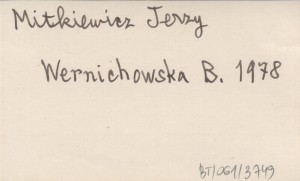 Mitkiewicz Jerzy
Wernichowska B. 1978
BT/061/3749